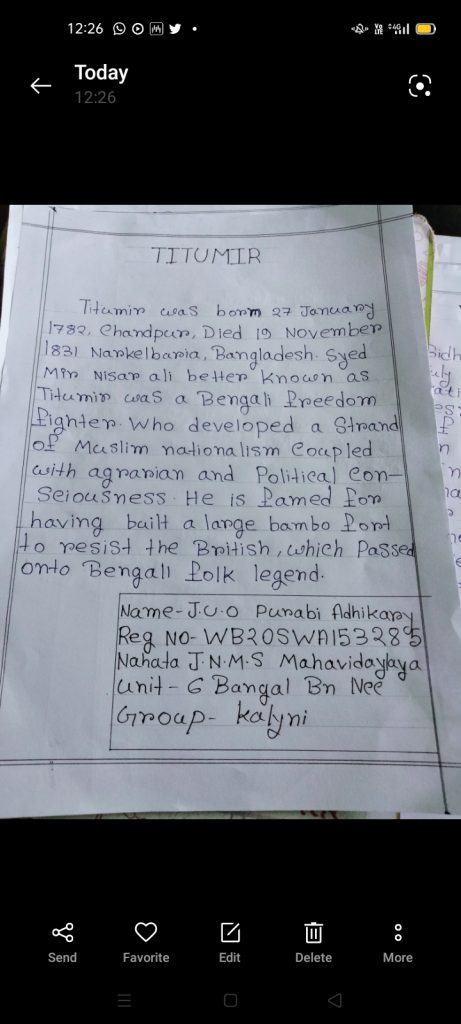 12:26
Today
12:26
TITUMIR
Titumir was born 27 January
1782, Chandpur, Died 19 November
1831 Narkelbaria, Bangladesh. Syed
Mir Nisar ali better known as
Titumir was a Bengali freedom
fighter. Who developed a Strand
of Muslim nationalism Coupled
with agrarian and Political Con-
Sciousness. He is famed for
having built a large bambo fort
to resist the British, which Passed
onto Bengali folk legend.
Name-J.U.O Purabi Adhikary
Reg NO-WB20SWA153285
Nahata J.N.M.S Mahavidaylaya
Unit-6 Bangal Bn Ncc
Group- Kalyni
Send Favorite Edit Delete More